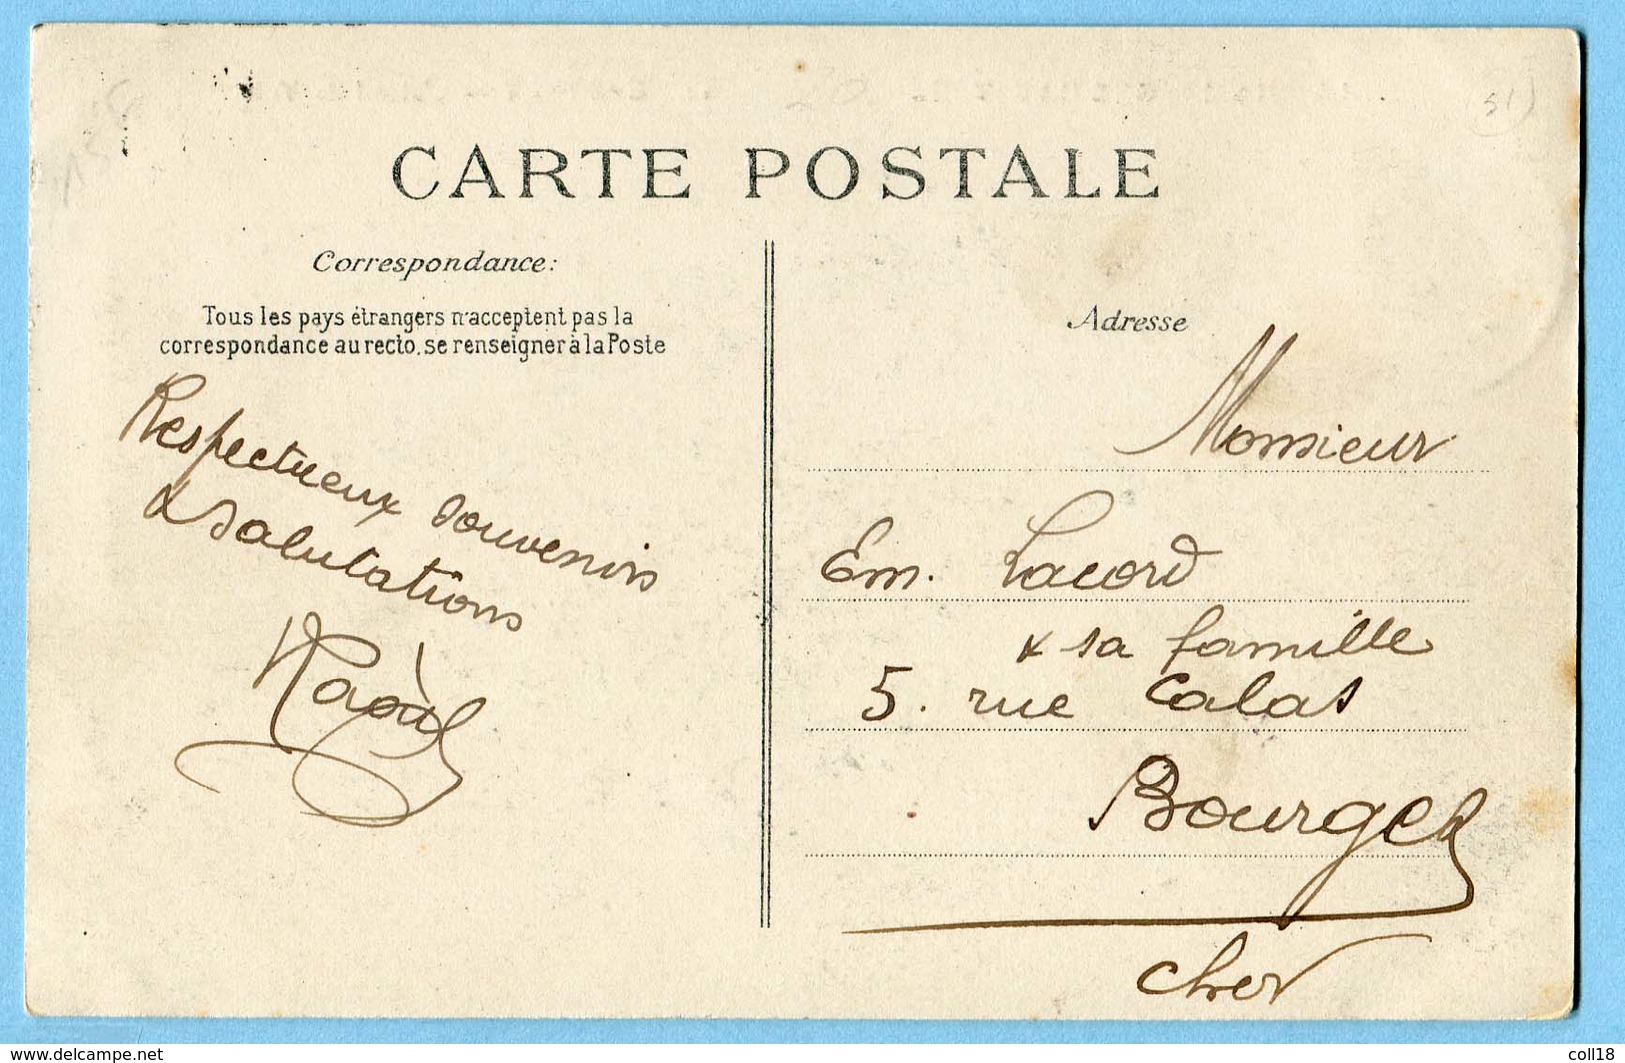 CARTE POSTALE
Correspondance:
Tous les pays étrangers n'acceptent pas la
correspondance au recto, se renseigner à la Poste
Respectueux souvenirs
& salutations
Raoùl
Adresse
Monsieur
Em. Lacord
& sa famille
5. rue Calas
Bourges
Cher
(51)
www.delcampe.net
coll18